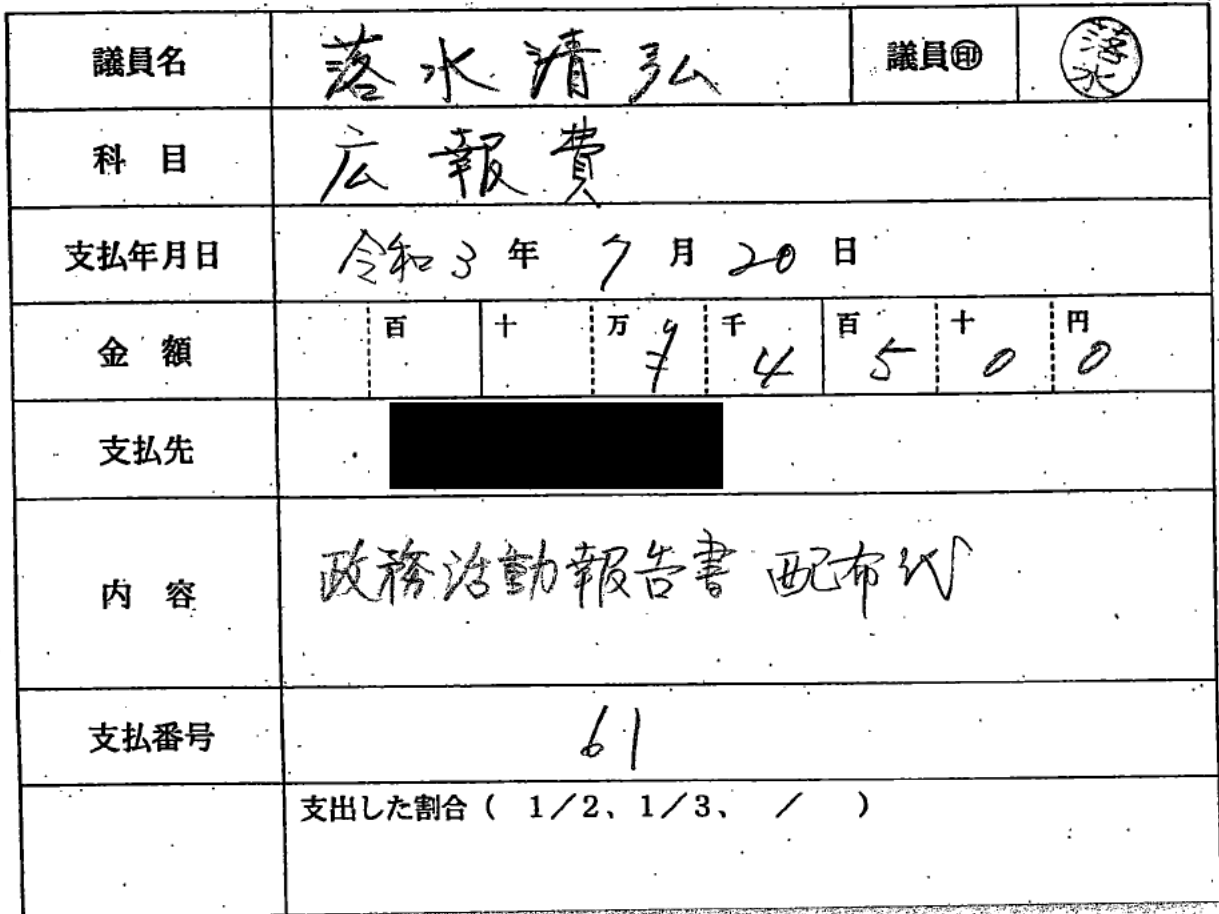 議員名 落水清弘 議員㊞ 落水
科 目 広報費
支払年月日 令和3年 7月 20日
金 額 百 十 万 ¥ 千 4 百 5 十 0 円 0
支払先
内 容 政務活動報告書 配布代
支払番号 61
支出した割合( 1/2、1/3、 / )